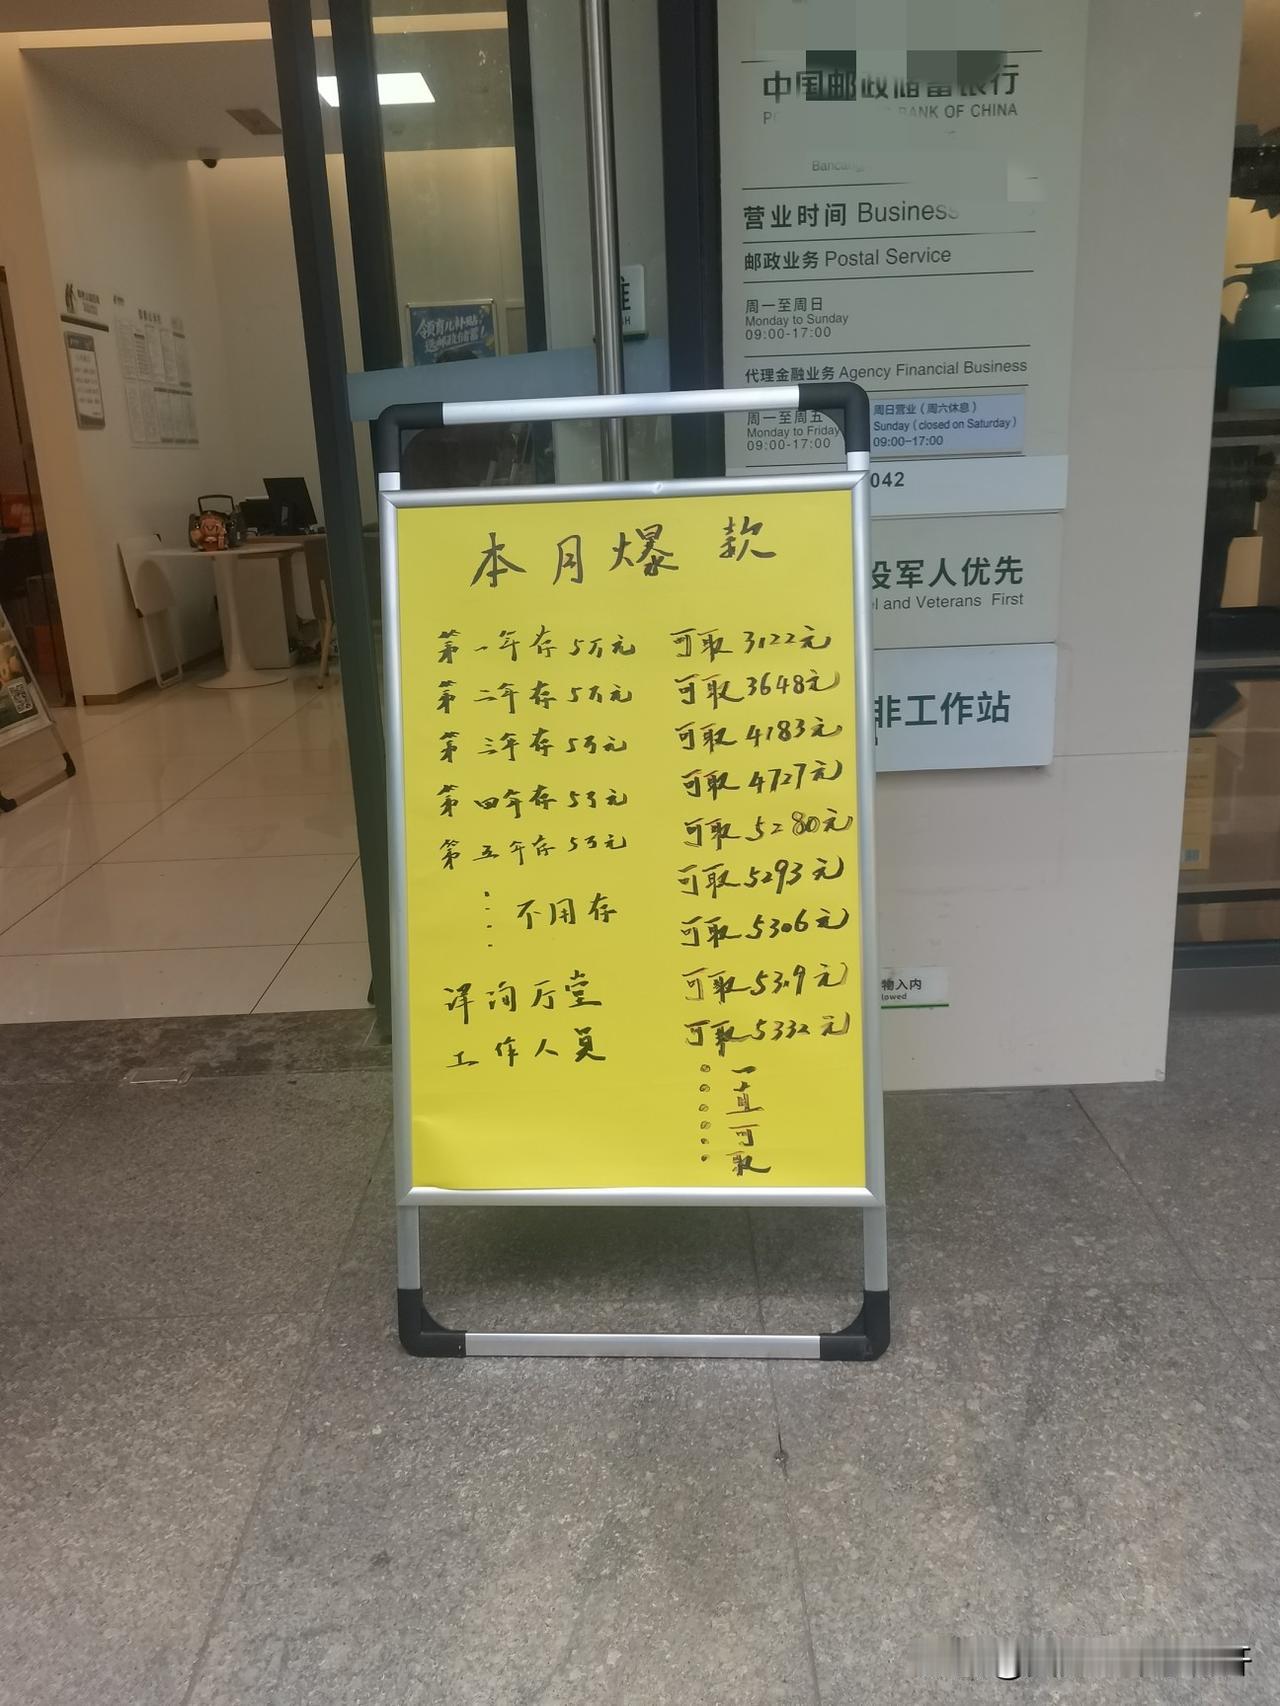 中国邮政储蓄银行
BANK OF CHINA
营业时间 Business
邮政业务 Postal Service
周一至周日
Monday to Sunday
09:00-17:00
代理金融业务 Agency Financial Business
周一至周五
Monday to Friday
09:00-17:00
周日营业（周六休息）
Sunday (closed on Saturday)
09:00-17:00
042
役军人优先
and Veterans First
非工作站
物入内
领育儿补贴
选邮政储蓄！
本月爆款
第一年存5万元 可取3122元
第二年存5万元 可取3648元
第三年存5万元 可取4183元
第四年存5万元 可取4727元
第五年存5万元 可取5280元
可取5293元
不用存 可取5306元
详询厅堂 可取5319元
工作人员 可取5332元
一直可取